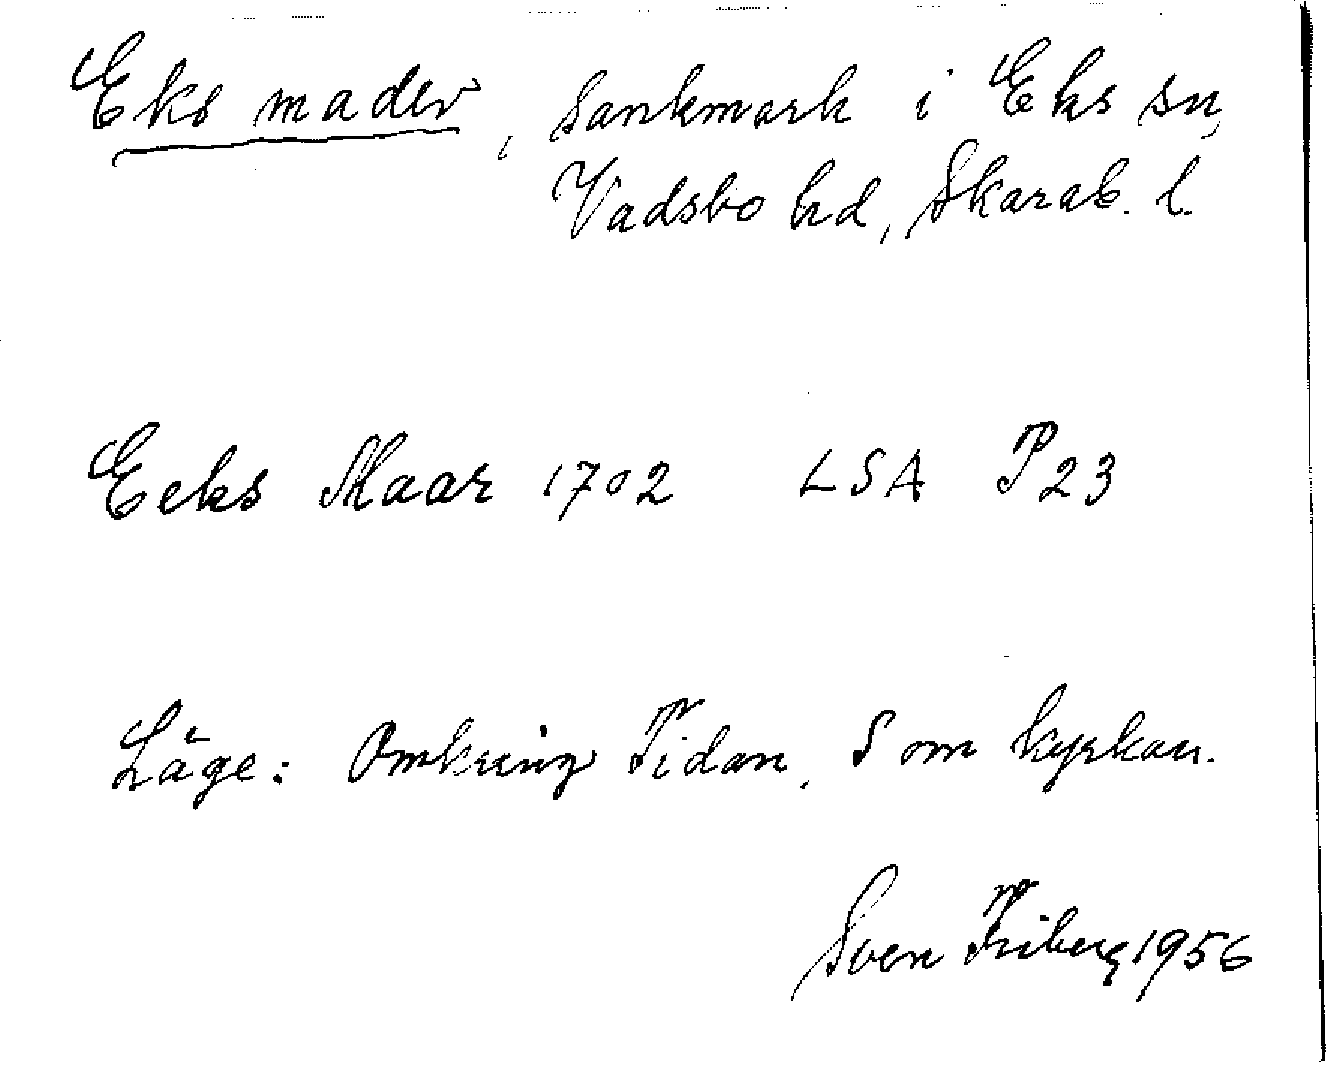 Eks mader, sankmark i Eks sn,
Vadsbo hd, Skarab. l.
Eeks Maar 1702 LSA P23
Läge: Omkring Tidan, S om kyrkan.
Sven Friberg 1956